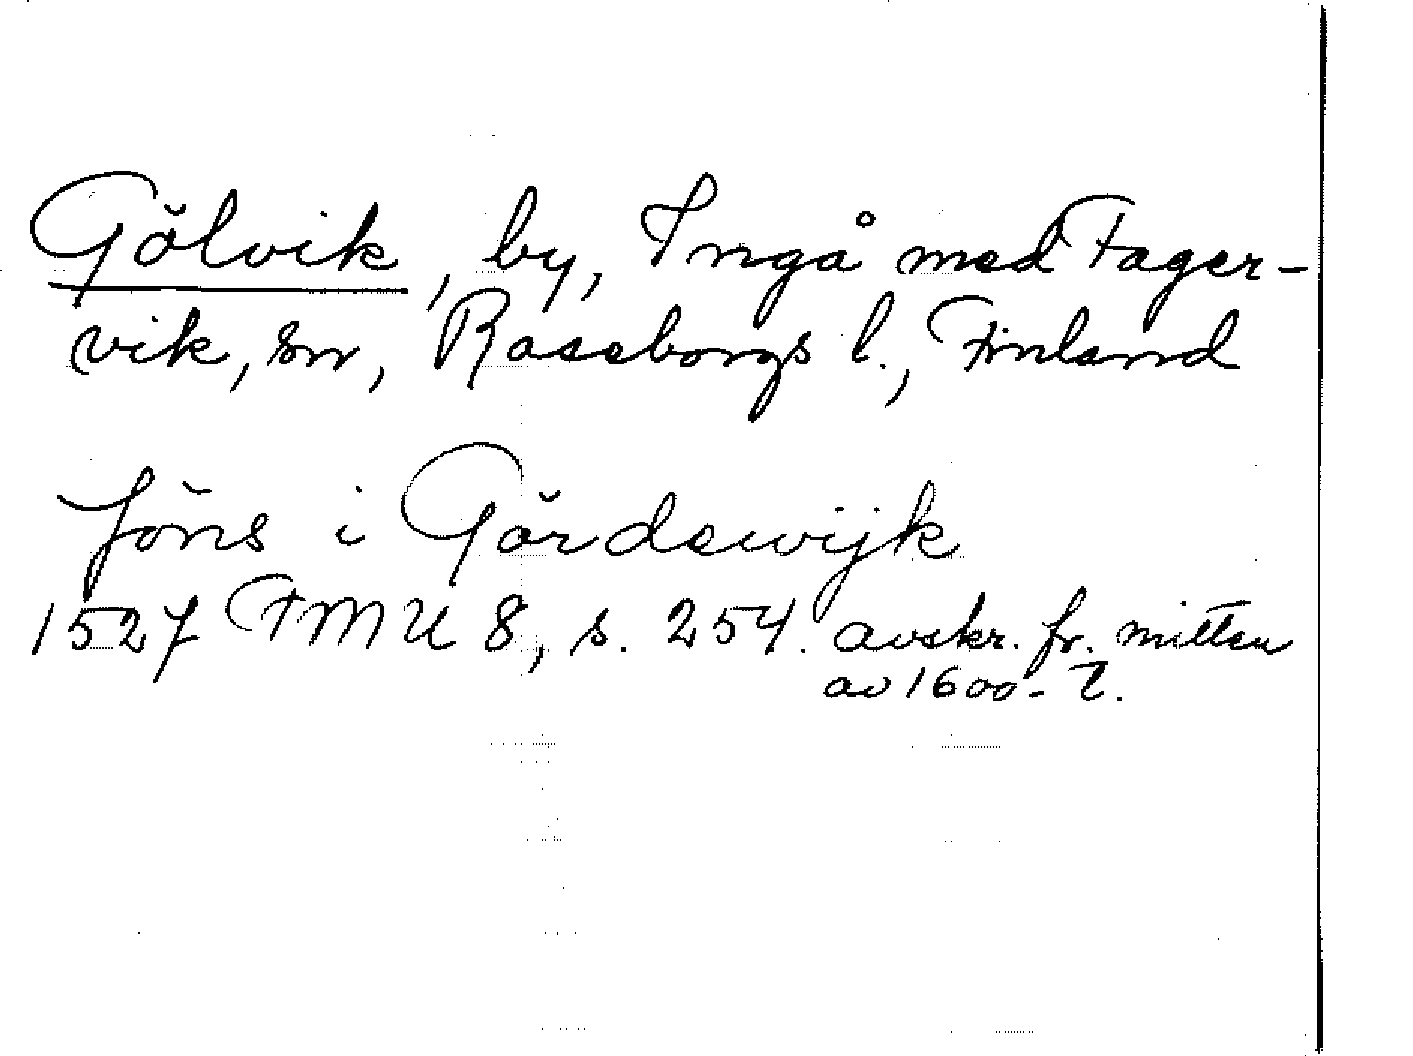 Gölvik, by, Ingå med Fager-
vik, sn, Raseborgs l., Finland
Jöns i Gördewijk
1527 FMU 8, s. 254. avskr. fr. mitten
av 1600-t.